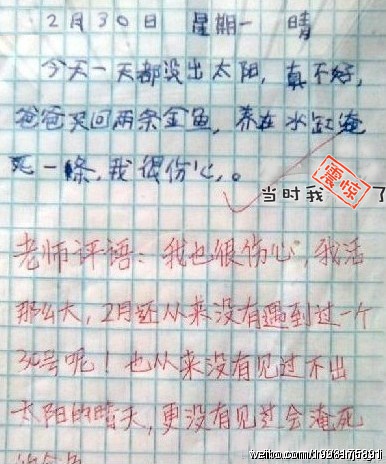 2月30日 星期一 晴
今天一天都没出太阳，真不好，
爸爸买回两条金鱼，养在水缸淹
死一條，我很伤心。
当时我震惊了
老师评语：我也很伤心，我活
那么大，2月还从来没有遇到过一个
30号呢！也从来没有见过不出
太阳的晴天，更没有见过会淹死
的金鱼